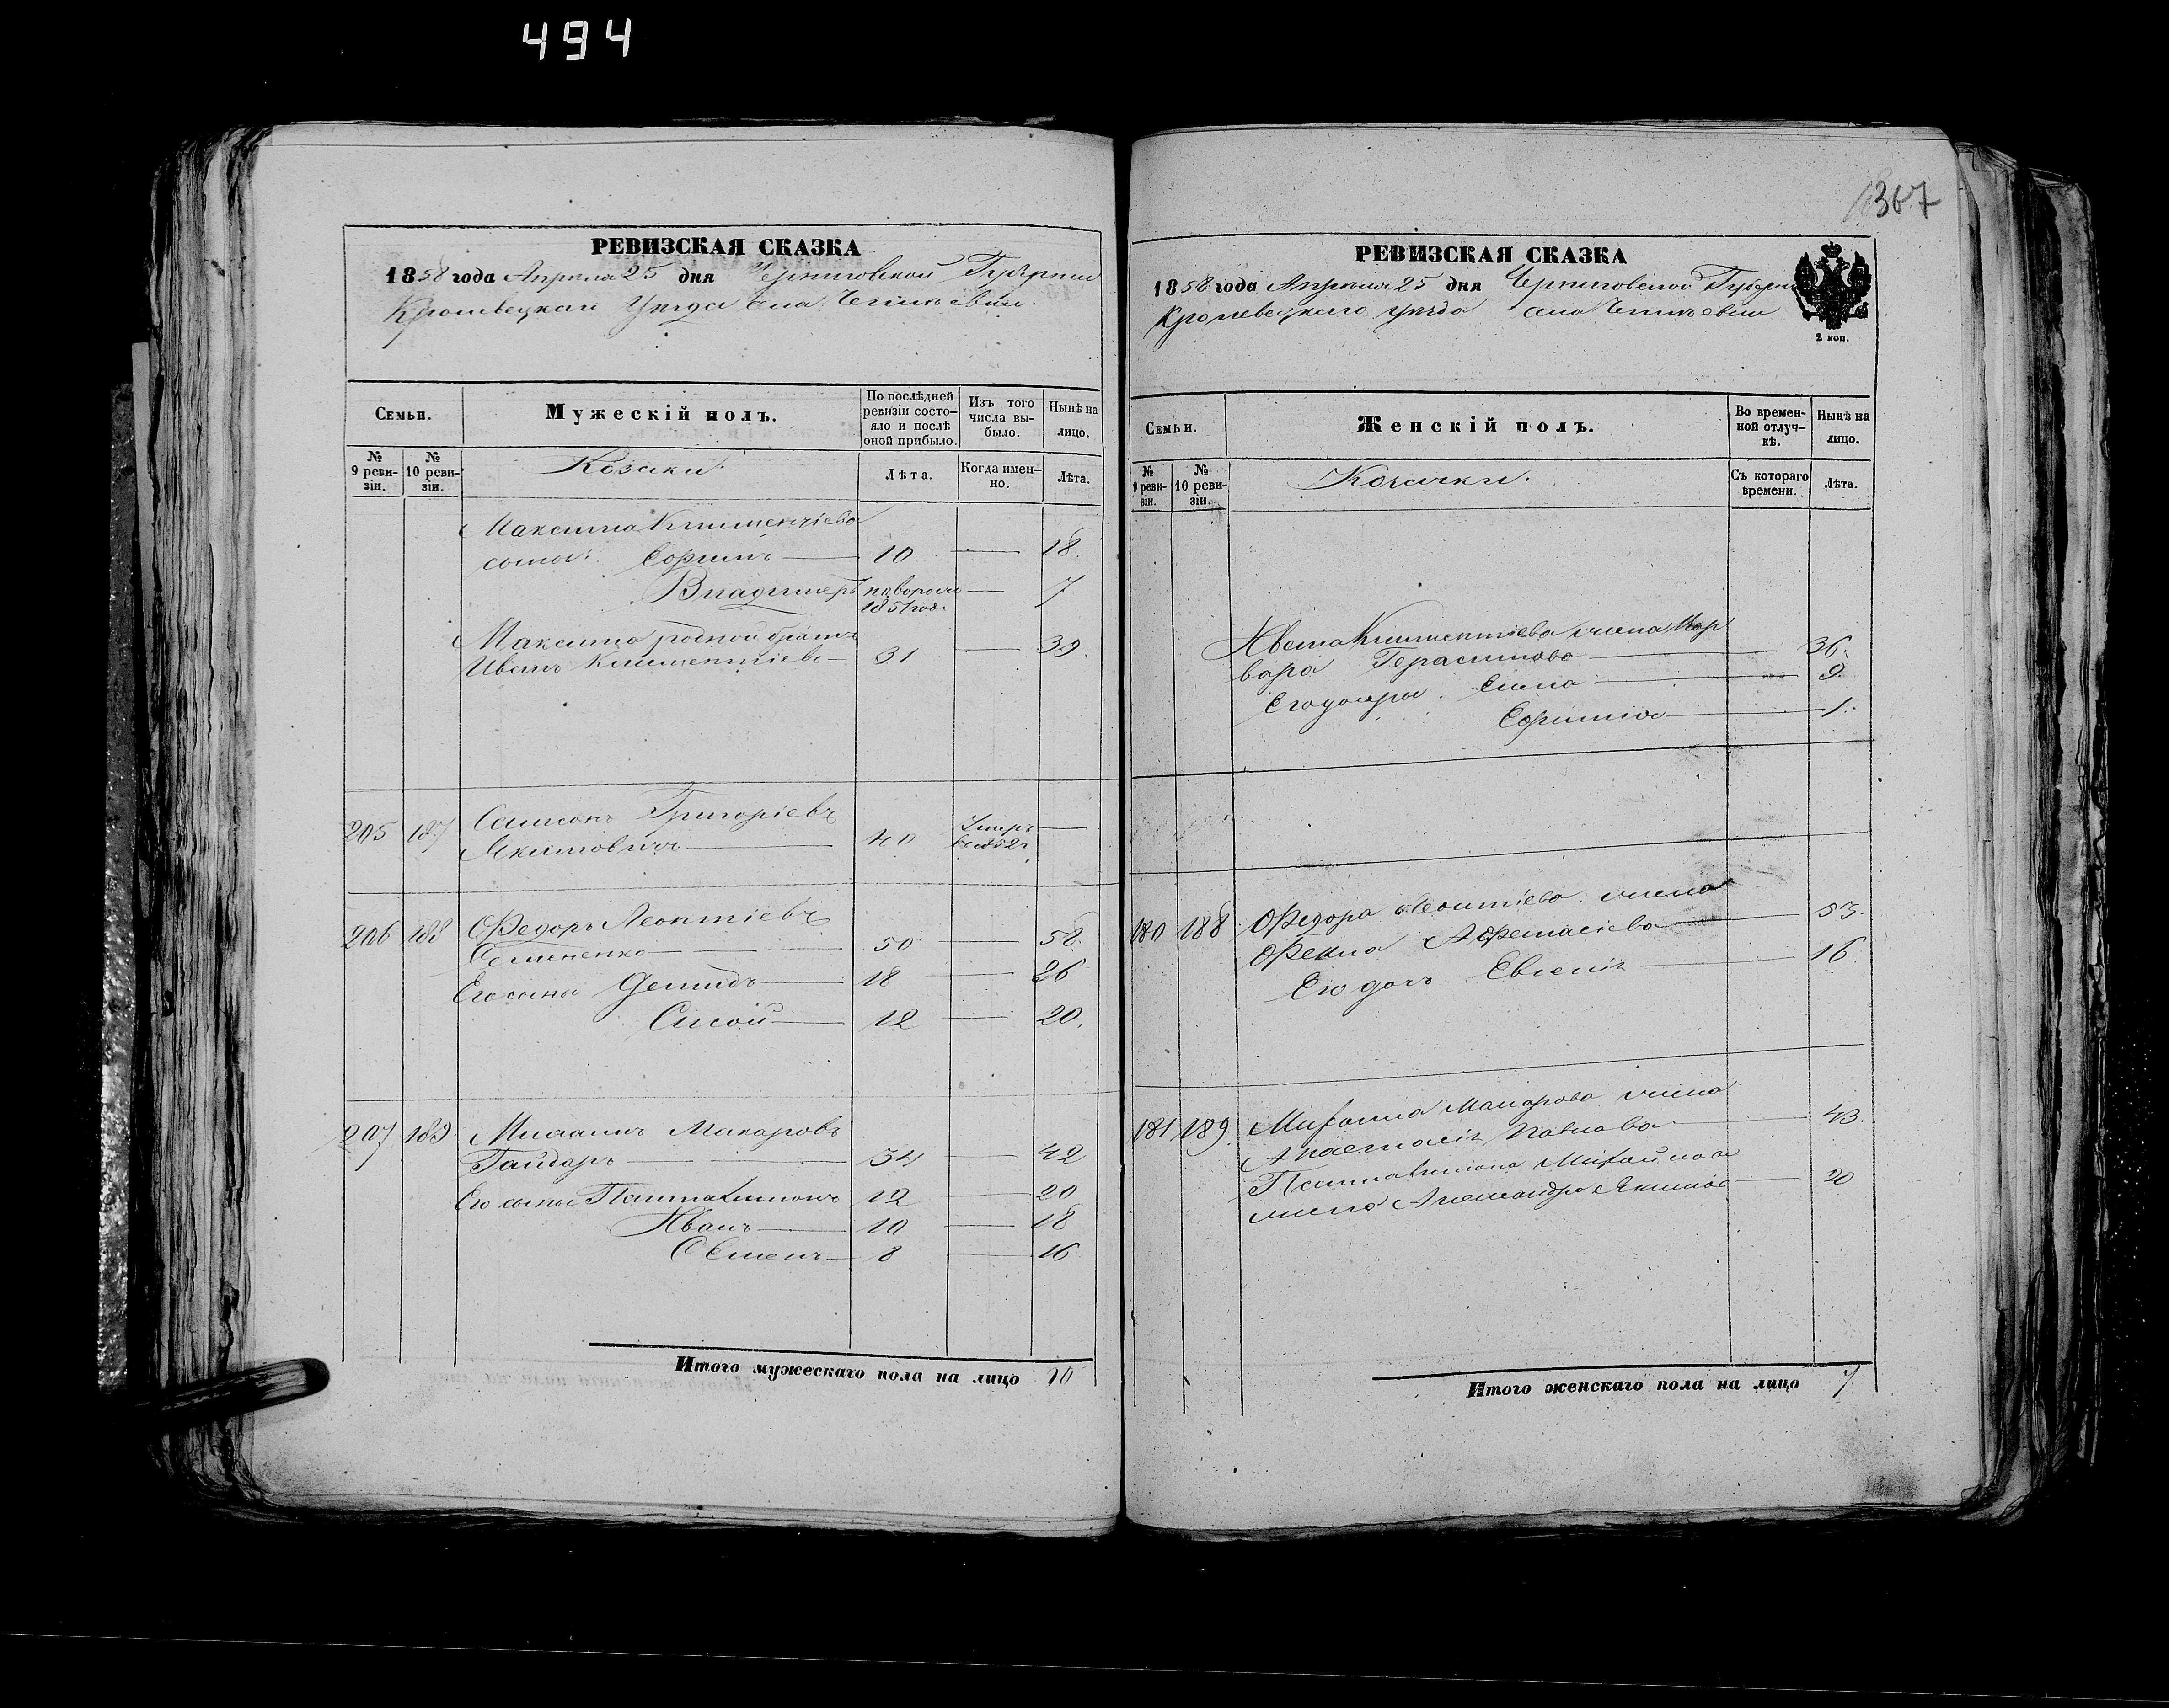 494
367
РЕВИЗСКАЯ СКАЗКА
1858 года Апреля 25 дня Черниговской Губернии
Кролевецкаго Уезда села
Семьи.
Мужескій полъ.
По послѣдней ревизіи состояло и послѣ оной прибыло.
Изъ того числа выбыло.
Нынѣ на лицо.
№ 9 ревизіи.
№ 10 ревизіи.
Козаки
Лѣта.
Когда именно.
Лѣта.
Максима Климентіева
сыны: Ефимъ 10 18.
Владимеръ 1851 7
Максима родной братъ
Иванъ Климентіевъ 31 39.
205 187 Григоріевъ
40 Умеръ 1852
206 188 Федоръ Леонтіевъ
50 58.
Его сыны Демидъ 18 26
Сисой 12 20.
207 189 Михаилъ Макаровъ
Гайдаръ 34 42
Его сыны Пантелимонъ 12 20
Иванъ 10 18
Семенъ 8 16
Итого мужескаго пола на лицо 10
РЕВИЗСКАЯ СКАЗКА
1858 года Апреля 25 дня Черниговской Губерни
Кролевецкаго уезда села
2 коп.
Семьи.
Женскій полъ.
Во временной отлучкѣ.
Нынѣ на лицо.
№ 9 ревизіи.
№ 10 ревизіи.
Козачки.
Съ котораго времени.
Лѣта.
Ивана Климентіева жена Вар
вара Герасимова 36.
Его дочери Елена 9.
Ефимія 1.
180 188 Федора Леонтіева жена
Фекла 53.
Его дочь Евгенія 16
181 189 Михаила Макарова жена
Анастасія Павлова 43.
Пантелимона Михайлова
жена Александра 20
Итого женскаго пола на лицо 7